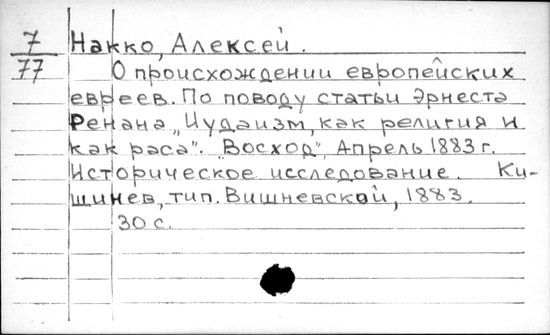 7 Накко, Алексей.
77 О происхождении европейских
евреев. По поводу статьи Эрнеста
Ренана „Иудаизм, как религия и
как раса". „Восход", Апрель 1883 г.
Историческое исследование. Ки-
шинев, тип. Вишневской, 1883.
30 с.